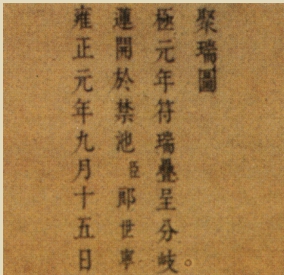 聚瑞圖
極元年符瑞疊呈分岐
蓮開於禁池臣郎世寧
雍正元年九月十五日